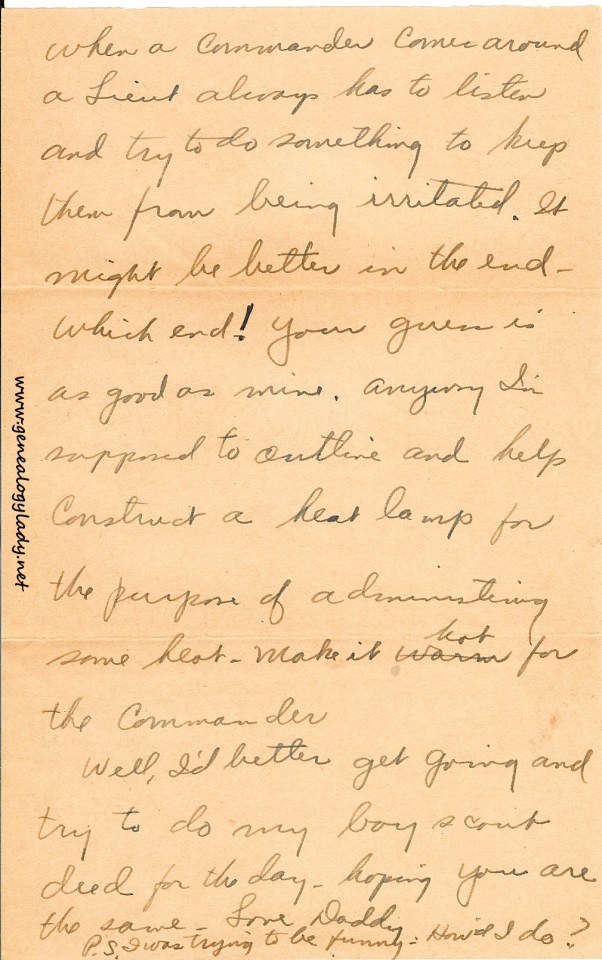 When a Commander comes around
a Lieut always has to listen
and try to do something to keep
them from being irritated. It
might be better in the end -
Which end! Your guess is
as good as mine. Anyway I'm
supposed to outline and help
Construct a heat lamp for
the purpose of administering
some heat - Make it warm hot for
the Commander
Well, I'd better get going and
try to do my boy scout
deed for the day - hoping you are
the same - Love Daddy
P.S. I was trying to be funny - How'd I do?
www.genealogylady.net